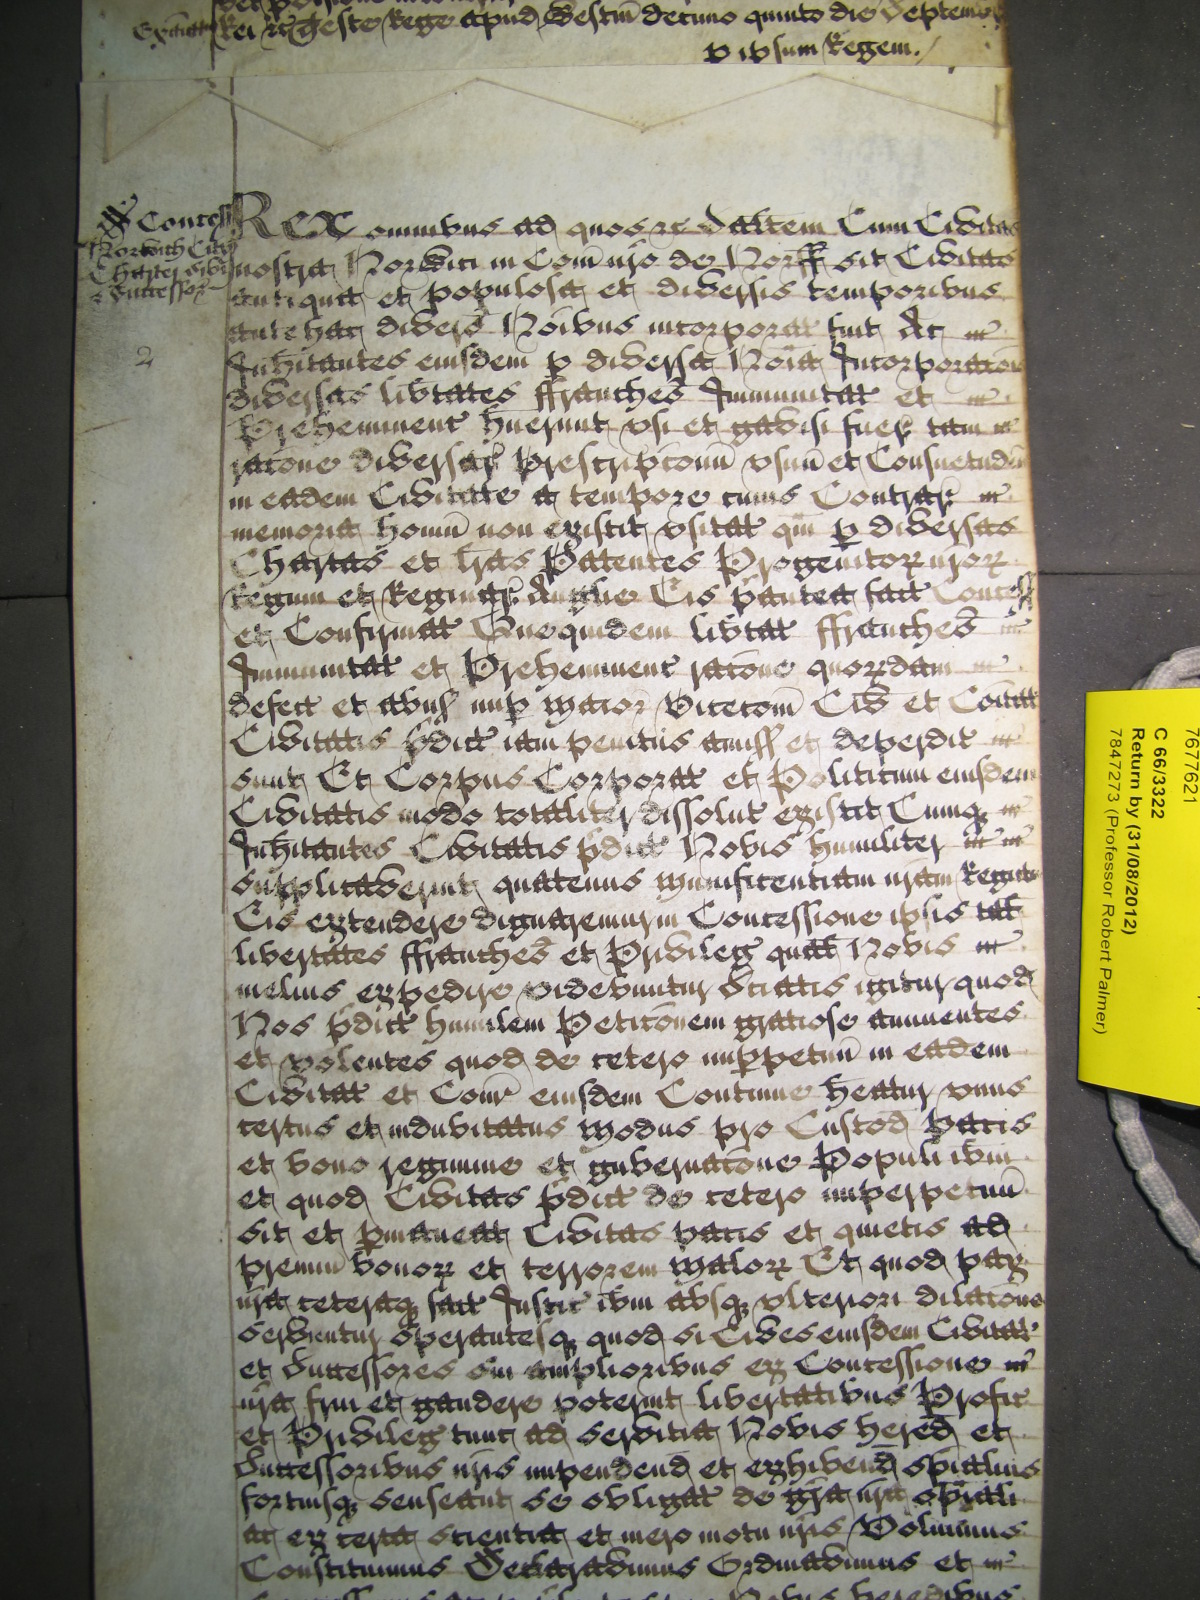 Rei &c Teste Rege apud Westm decimo quinto die Septemb
p ipsum Regem.
Concess
Norwich Civ
Charter sibi
& Successor
2
Rex omnibus ad quos &c Saltem Cum Civitas
nostra Norwici in Com nro de Norff sit Civitas
antiqua et populosa et diversis temporibus
ante hac divers Noibus incorporat fuit Ac
Inhitantes eiusdem p diversa Noia Incorporacon
diversas libtates ffranches Immunitat et
Preheminenc huerunt usi et gavisi fuer tam
racone diversar Prescripconu usuu et Consuetudin
in eadem Civitate a tempore cuius Contrar
memoria homiu non existit usitat qm p diversas
Chartas et lras Patentes Progenitor nror
Regum et Reginar Anglie Eis pantea fact Concess
et Confirmat Quequidem libtat ffranches
Immunitat et Preheminenc racone quordam
defect et abus nup Maior Vicecom Civ et Coitat
Civitatis pdict iam penitus amiss et deperdit
sunt Et Corpus Corporat et Politicum eiusdem
Civitatis modo totaliter dissolut existit Cumq
Inhitantes Civitatis pdict Nobis humiliter
supplicaverint quatenus Munificentiam nram Regiam
Eis extendere dignaremur in Concessione ipsis tal
libertates ffranches et Privileg qual Nobis
melius expedire videbuntur Sciatis igitur quod
Nos pdict humilem Peticonem graciose annuentes
et volentes quod de cetero imppetuu in eadem
Civitat et Com eiusdem Continue heatur unus
certus et indubitatus Modus pro Custod Pacis
et bono regimine et gubernacone Populi ibm
et quod Civitas pdict de cetero imperpetuu
sit et pmaneat Civitas pacis et quietis ad
premiu bonor et terrorem Malor Et quod pax
nra ceteraq fact Justic ibm absq ulteriori dilacone
serventur Sperantesq quod si Cives eiusdem Civitat
et Successores sui amplioribus ex Concessione
nra frui et gaudere poterint libertatibus Profic
et Privileg tunc ad servitia Nobis hered et
Successoribus nris impendend et exhibend spialius
fortiusq senseant se obligat de gra nra spiali
ac ex certa scientia et mero motu nris Volumus
Constituimus Declaravimus Ordinavimus et
7677621
C 66/3322
Return by (31/08/2012)
7847273 (Professor Robert Palmer)